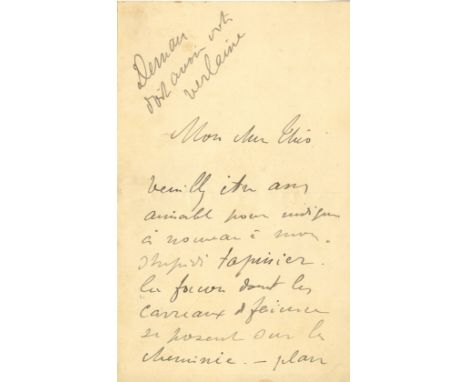 Deman
doit avoir écrit
Verlaine
Mon cher Théo
veuillez être assez
aimable pour indiquer
à nouveau à mon
stupide tapissier
la façon dont les
carreaux de faïence
se posent sur la
cheminée. – plan